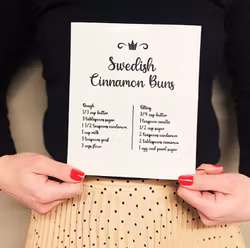 Swedish
Cinnamon Buns
Dough
3/4 cup butter
3 tablespoons sugar
1 1/2 teaspoons cardamom
1 cup milk
3 teaspoons yeast
3 cups flour
Filling
3/4 cup butter
1 teaspoon vanilla
1/2 cup sugar
2 teaspoons cardamom
2 teaspoons cinnamon
1 egg and pearl sugar